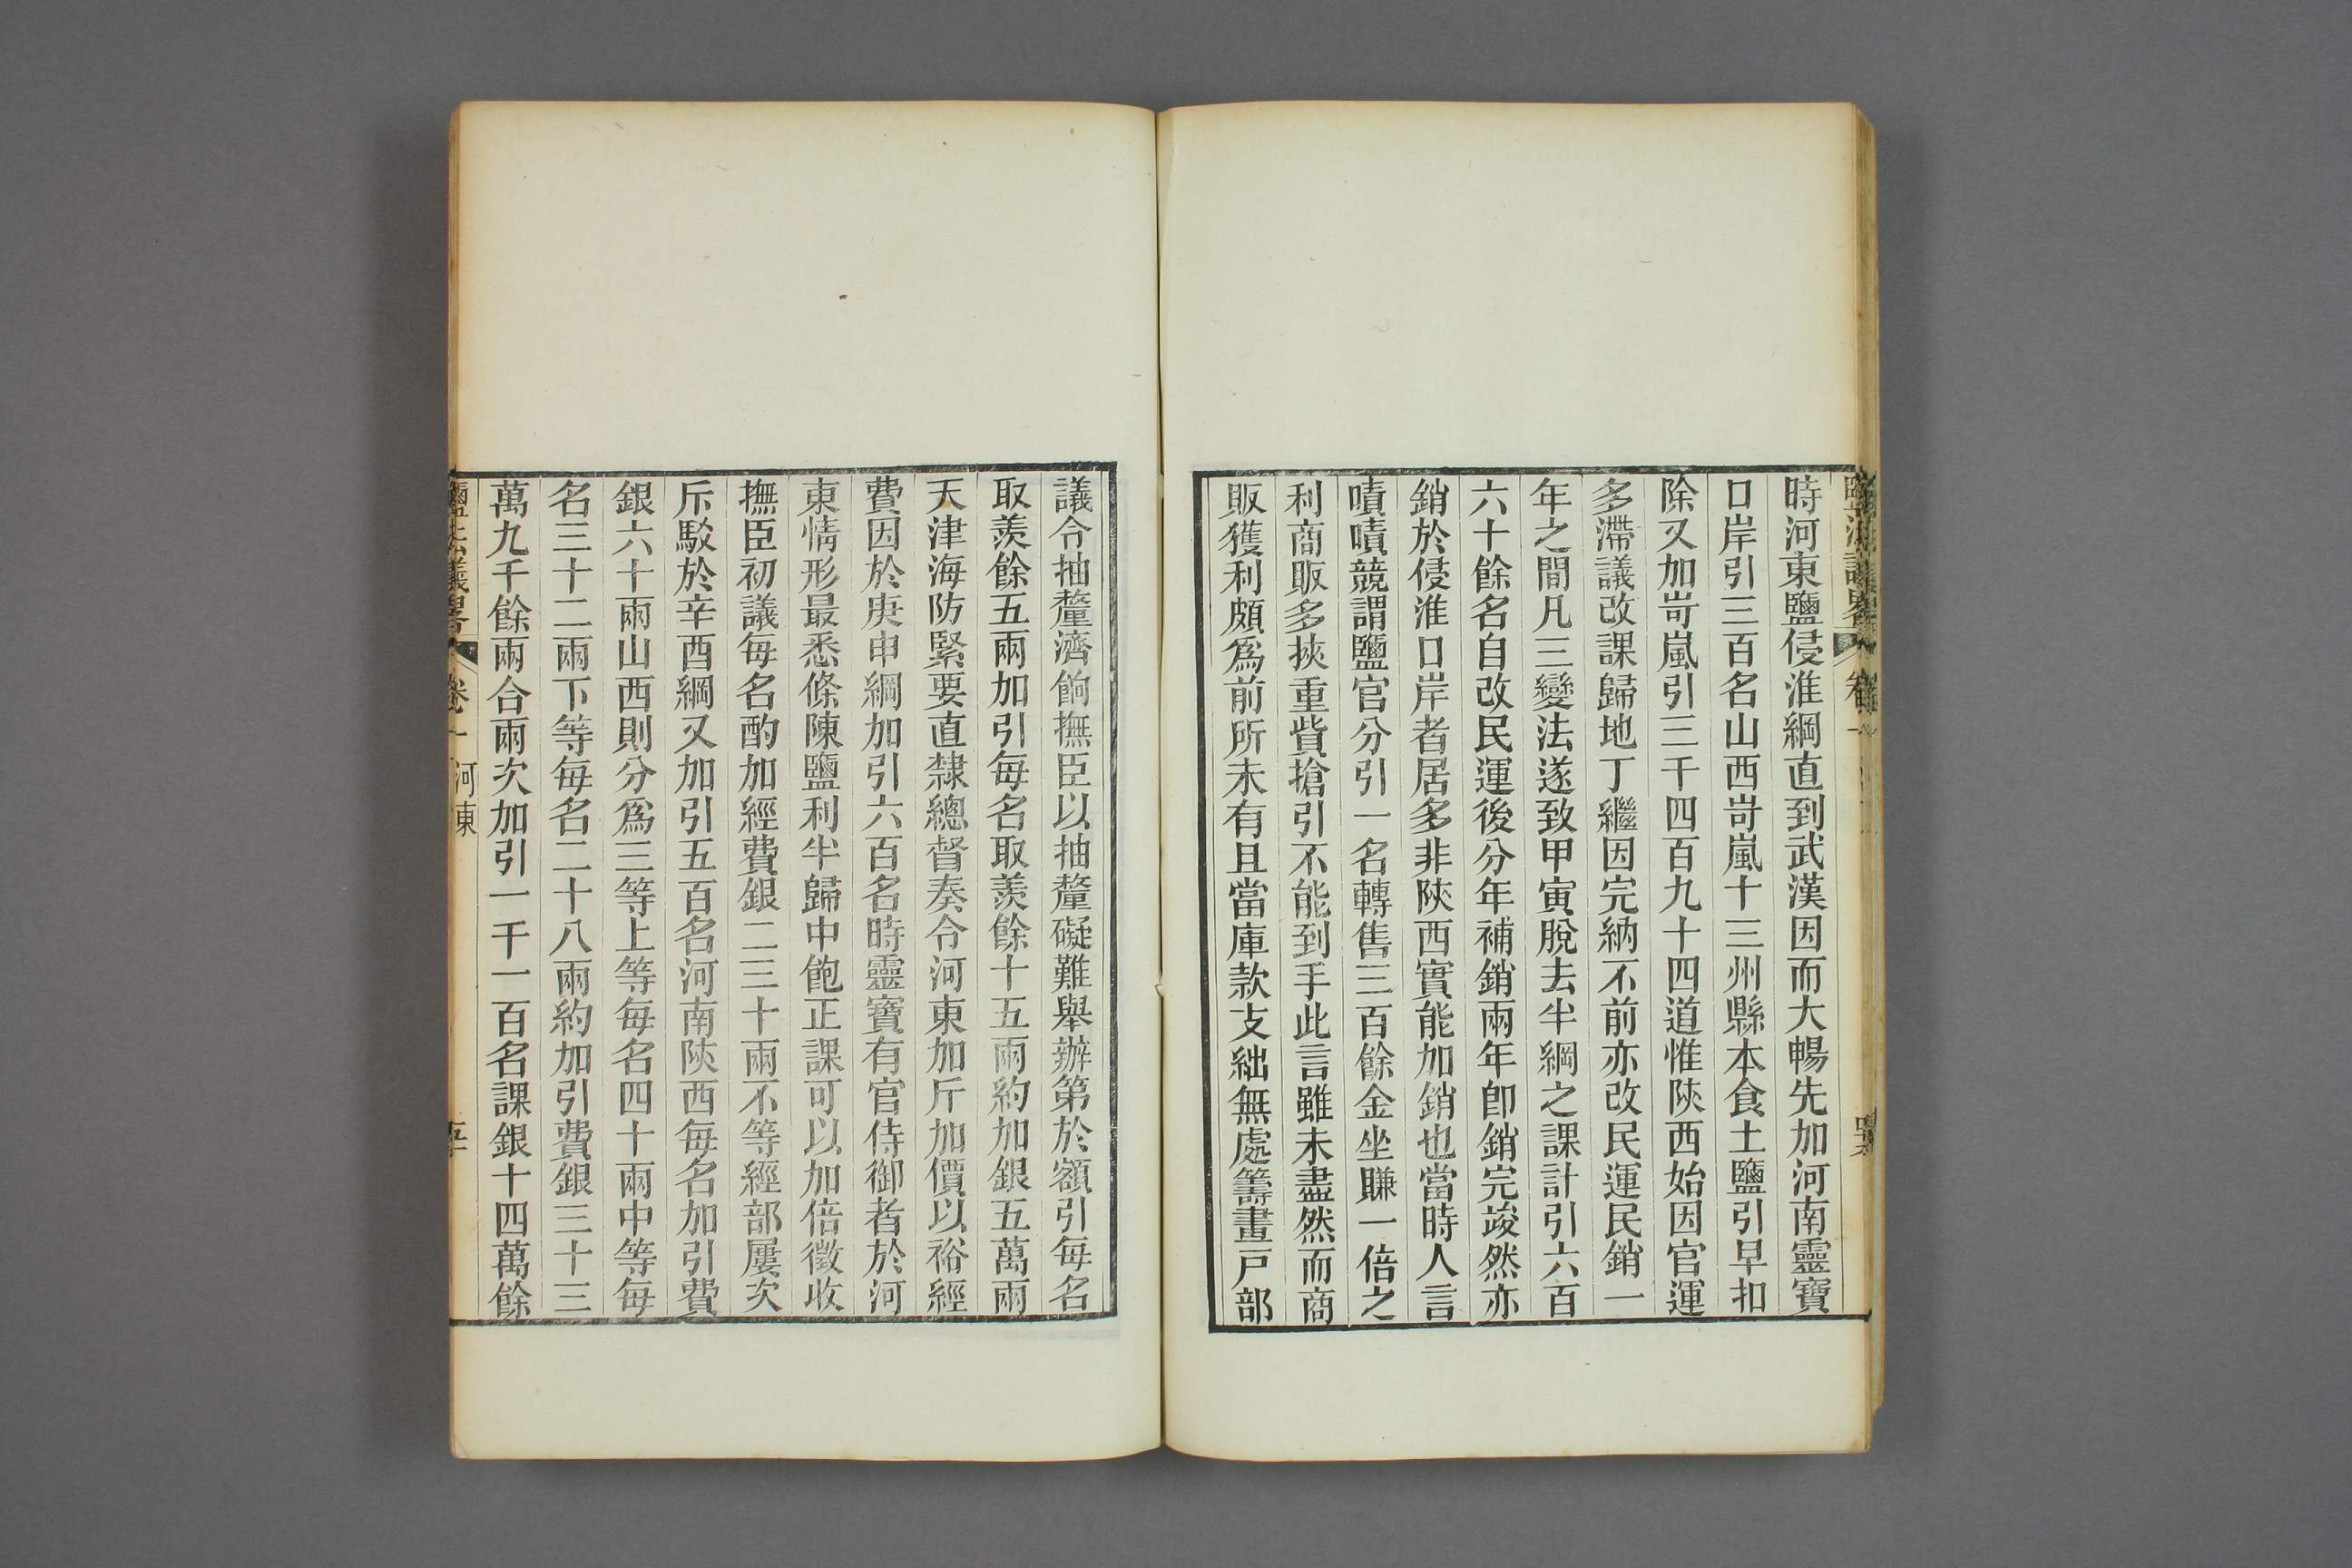 時河東鹽侵淮綱直到武漢因而大暢先加河南靈寶
口岸引三百名山西岢嵐十三州縣本食土鹽引早扣
除又加岢嵐引三千四百九十四道惟陜西始因官運
多滯議改課歸地丁繼因完納不前亦改民運民銷一
年之間凡三變法遂致甲寅脫去半綱之課計引六百
六十餘名自改民運後分年補銷兩年卽銷完竣然亦
銷於侵淮口岸者居多非陜西實能加銷也當時人言
嘖嘖競謂鹽官分引一名轉售三百餘金坐賺一倍之
利商販多挾重貲搶引不能到手此言雖未盡然而商
販獲利頗爲前所未有且當庫款支絀無處籌畫戸部
議令抽釐濟餉撫臣以抽釐礙難舉辦第於額引每名
取羨餘五兩加引每名取羨餘十五兩約加銀五萬兩
天津海防緊要直隸總督奏令河東加斤加價以裕經
費因於庚申綱加引六百名時靈寶有官侍御者於河
東情形最悉條陳鹽利半歸中飽正課可以加倍徵收
撫臣初議每名酌加經費銀二三十兩不等經部屢次
斥駁於辛酉綱又加引五百名河南陜西每名加引費
銀六十兩山西則分爲三等上等每名四十兩中等每
名三十二兩下等每名二十八兩約加引費銀三十三
萬九千餘兩合兩次加引一千一百名課銀十四萬餘
鹽法議畧 卷一 河東